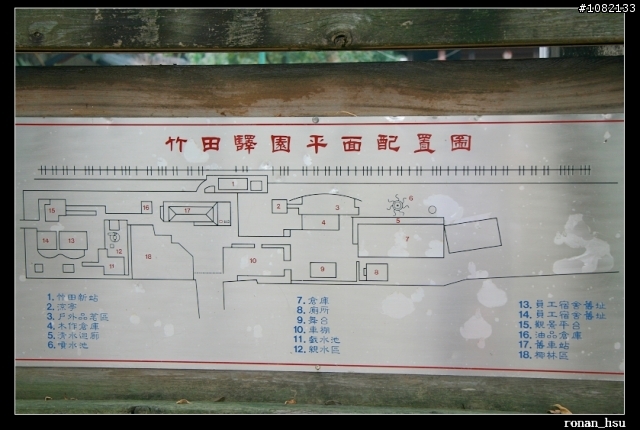 #1082133
竹田驛園平面配置圖
1. 竹田新站
2. 涼亭
3. 戶外品茗區
4. 木作倉庫
5. 清水迴廊
6. 噴水池
7. 倉庫
8. 廁所
9. 舞台
10. 車棚
11. 戲水池
12. 親水區
13. 員工宿舍舊址
14. 員工宿舍舊址
15. 觀景平台
16. 油品倉庫
17. 舊車站
18. 椰林區
1
2
3
4
5
6
7
8
9
10
11
12
13
14
15
16
17
18
ronan_hsu